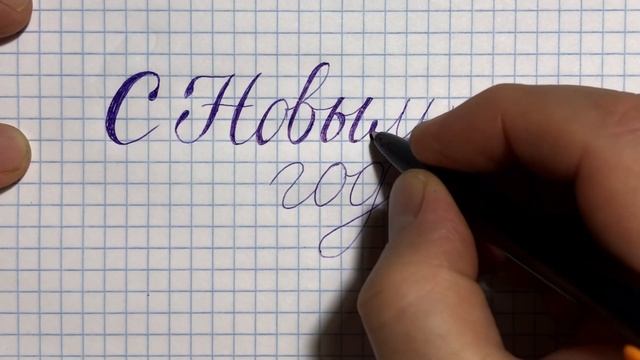 С Новым
год